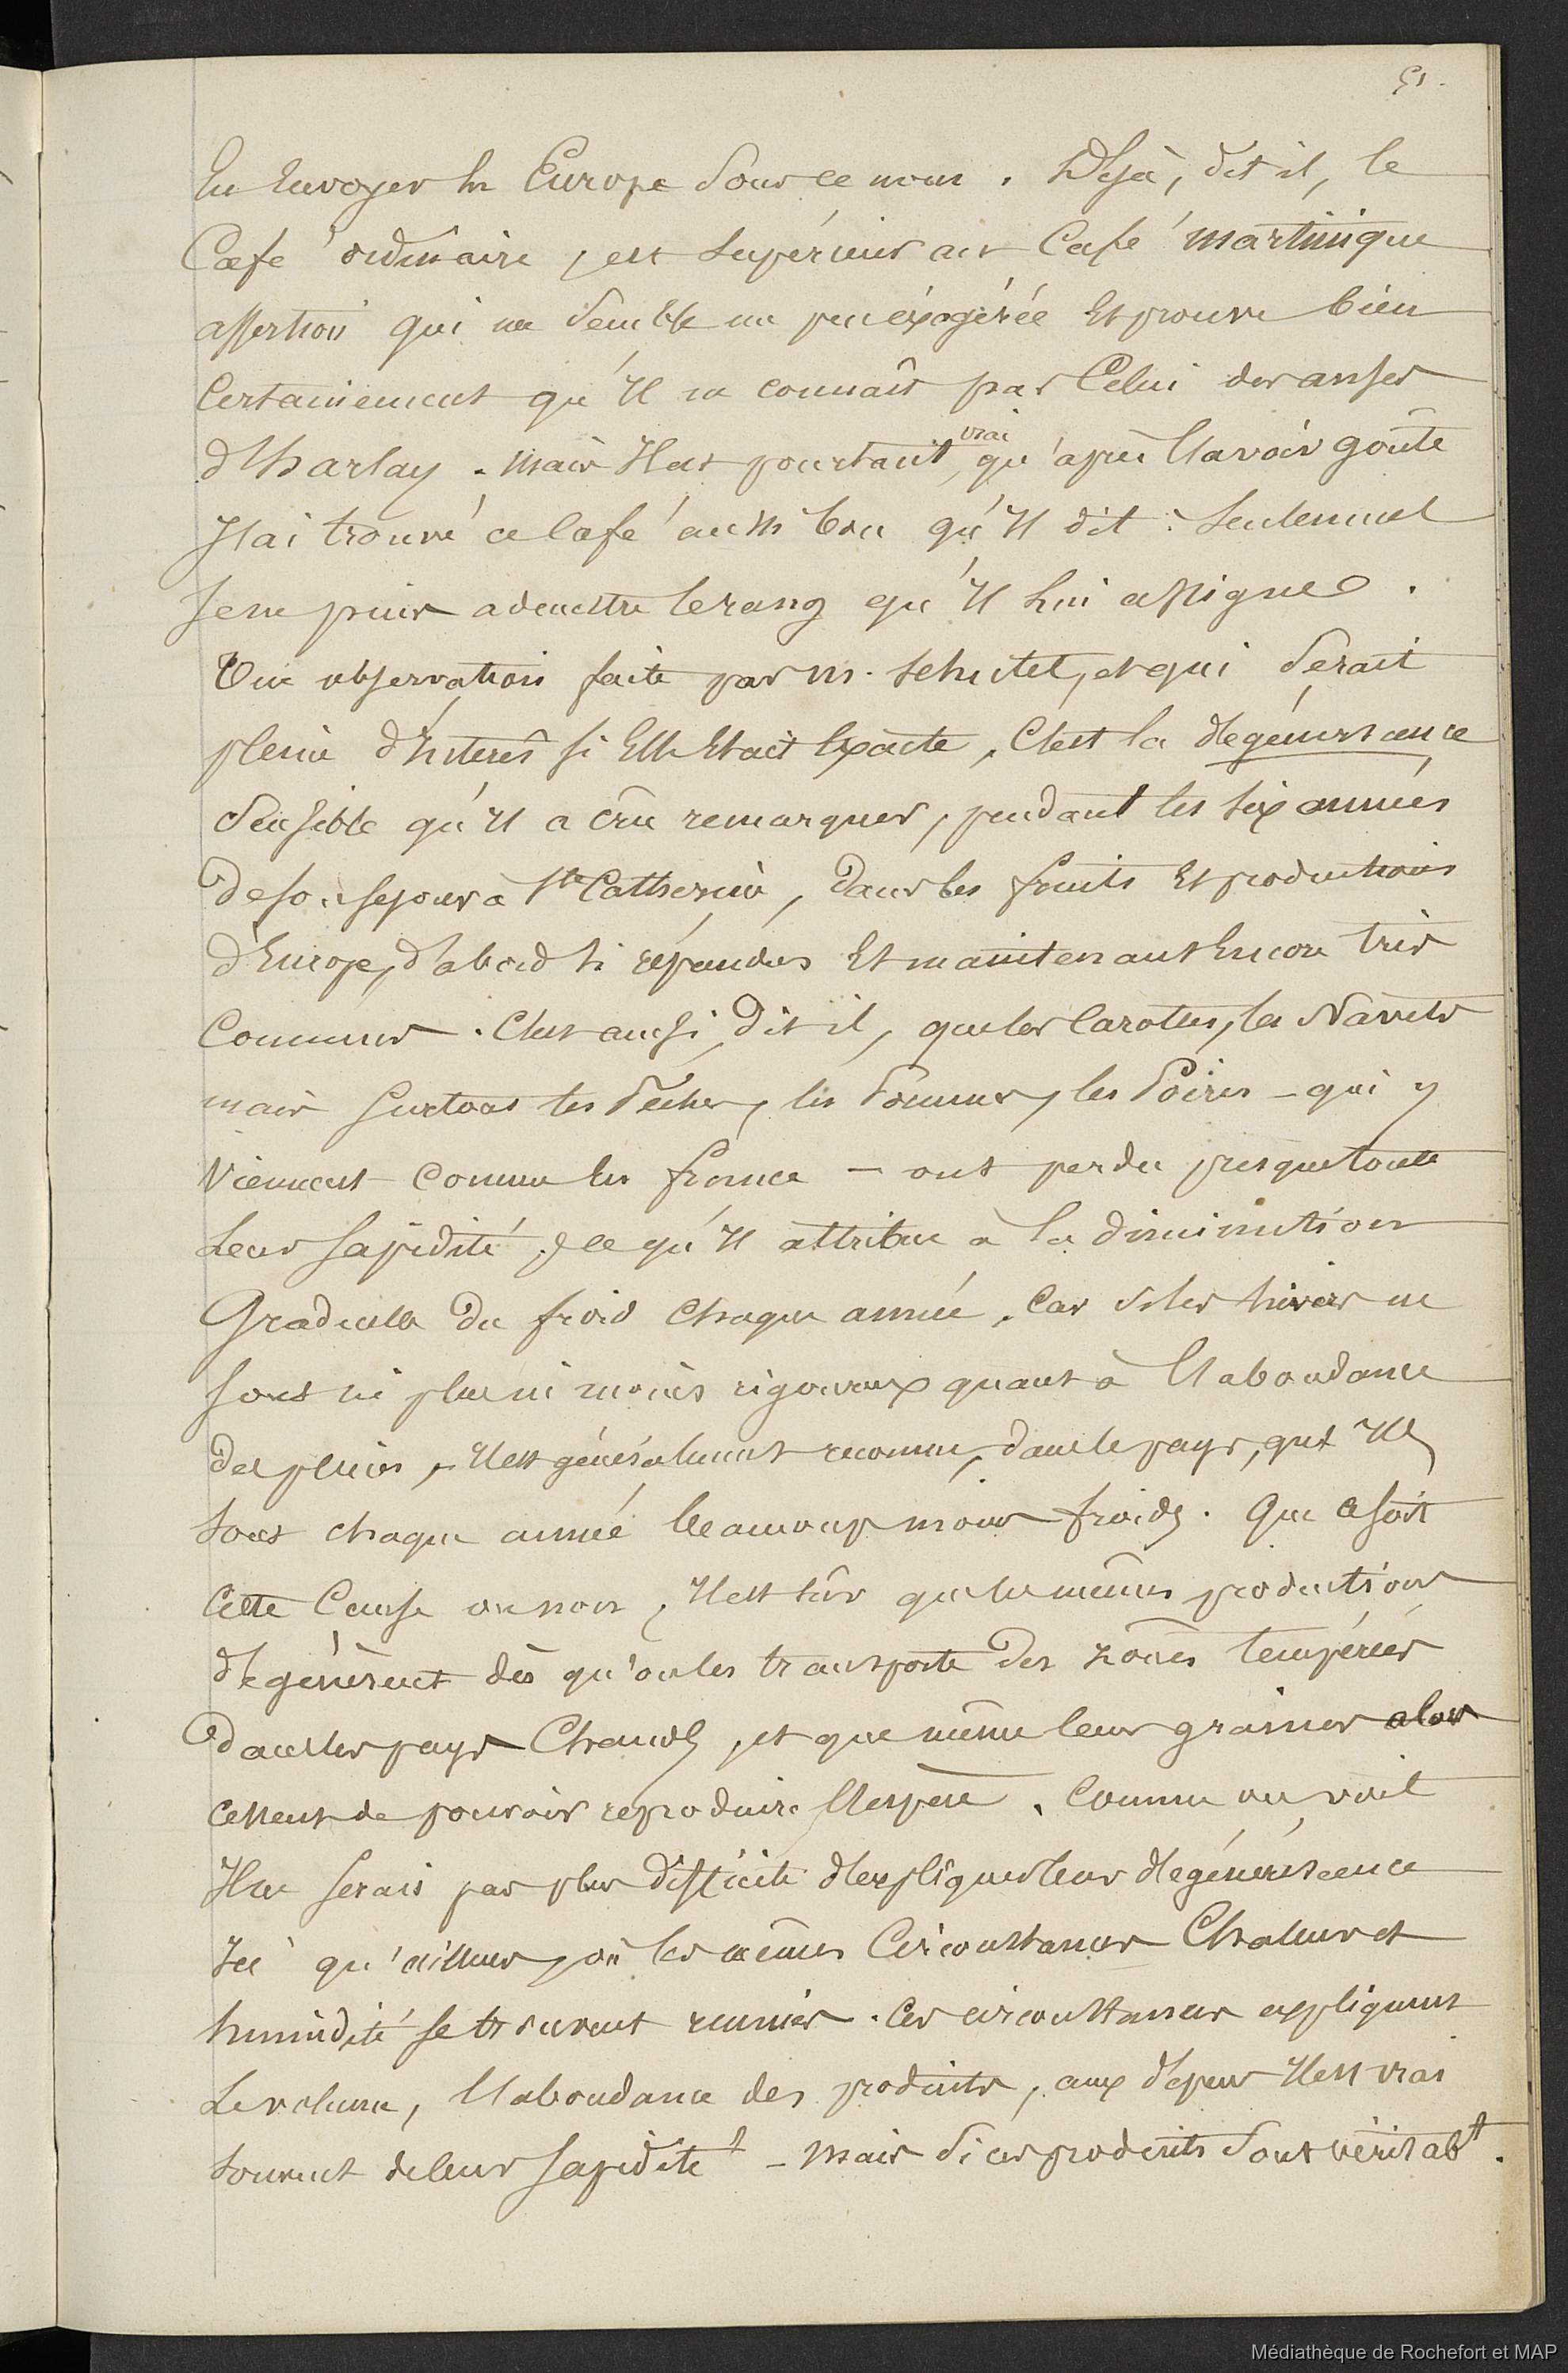 51.
En Envoyer En Europe Sous ce nom. Déjà, dit il, le
Café ordinaire, est Supérieur au Café martinique
assertion qui me Semble un peu éxagérée Et prouve bien
Certainement qu'Il ne connait pas Celui des anses
d'harlay. Mais Il est pourtant vrai, qu'après l'avoir goûté
J'ai trouvé ce Café aussi bon qu'Il dit : Seulement
Je ne puis admettre le rang qu'Il lui assigne.
Une observation faite par M. Schutel, et qui Serait
pleine d'Interêt si Elle Etait Exacte, C'est la dégénérescence
Sensible qu'Il a cru remarquer, pendant les Six années
de son sejour à Ste Catherine, Dans les fruits Et productions
d'Europe, d'abord si répandus Et maintenant Encore très
Communs. C'est ainsi, Dit il, que les Carottes, les Navets
mais Surtout les Pêches, les Pommes, les Poires - qui y
Viennent Comme En france - ont perdu presque toute
Leur Sapidité, ce qu'Il attribue à la Diminution
Graduelle Du froid Chaque année, Car Si les hivers ne
Sont ni plus ni moins rigoureux quant à l'abondance
Des pluies, Il est généralement reconnu, dans le pays, qu'Ils
Sont chaque année beaucoup moins froids. Que ce soit
Cette Cause ou non, Il est sûr que les mêmes productions
dégénèrent dès qu'on les transporte Des zônes tempérées
Dans les pays Chauds, et que même leurs graines alors
cessent de pouvoir reproduire l'espèce. Comme on voit
Il ne Serait pas plus Difficile d'expliquer leur dégénérescence
Ici qu'ailleurs, où les mêmes Circonstances Chaleur et
humidité se trouvent reunies. Ces circonstances expliquent
Le volume, l'abondance des produits, aux dépens Il est vrai
Souvent de leur Sapidité - Mais Si ces produits Sont véritabt.
Médiathèque de Rochefort et MAP